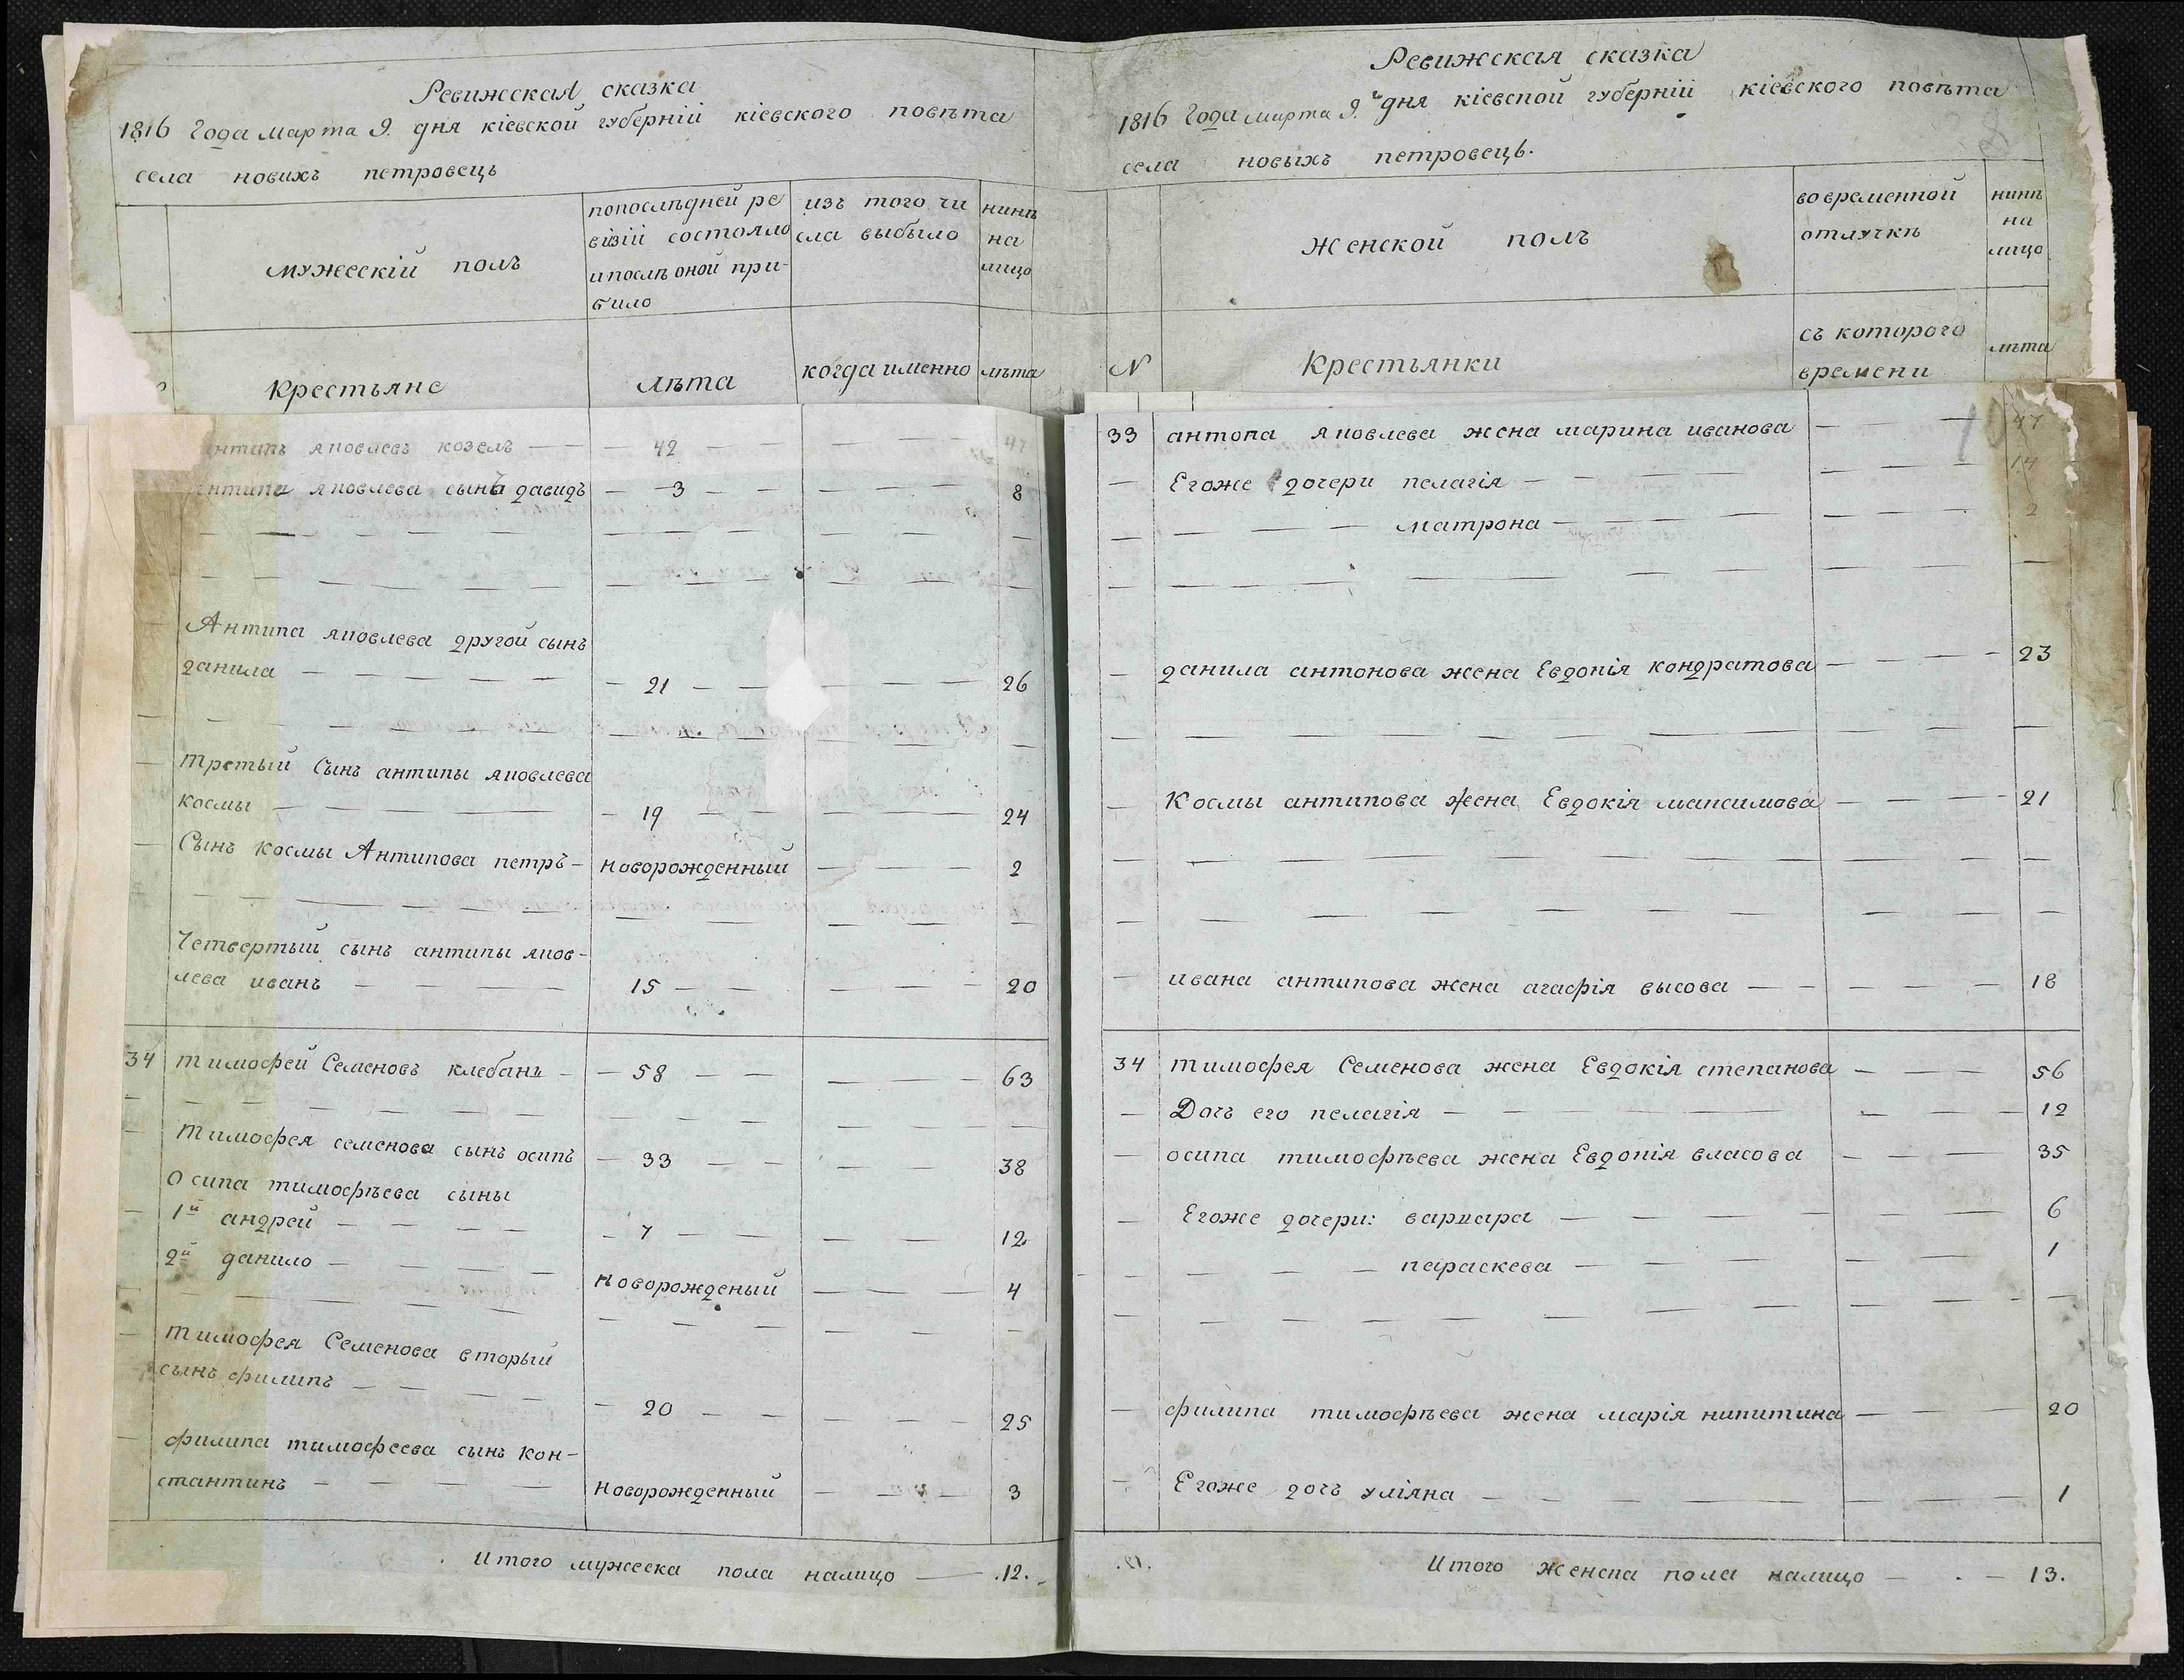 Ревижская сказка
1816 года марта 9. дня кіевской губерніи кіевского повѣта
села новихъ петровець
мужескій полъ
попослѣдней ре
візіи состояло
ипослѣ оной при-
било
изъ того чи
сла выбыло
нинѣ
на
лицо
Крестьяне
лѣта
когда именно
лѣта
яковлевъ козелъ — — 42 — — — 47
яковлева сынъ давидъ — 3 — — — 8
Антипа яковлева другой сынъ
данила — — — 21 — — — 26
третый сынъ антипы яковлева
космы — — — 19 — — — 24
Сынъ космы Антипова петръ — новорожденный — — — 2
Четвертый сынъ антипы яков-
лева иванъ — — — 15 — — — 20
34 тимофей Семеновъ клебанъ — 58 — — — 63
тимофея семенова сынъ осипъ — 33 — — — 38
осипа тимофѣева сыны
1й андрей — — — 7 — — — 12
2й данило — — — новорожденый — — — 4
тимофея Семенова вторый
сынъ филипъ — — — 20 — — — 25
филипа тимофеева сынъ кон-
стантинъ — — — новорожденный — — — 3
Итого мужеска пола налицо — .12.
Ревижская сказка
1816 года марта 9.го дня кіевской губерніи кіевского повѣта
села новыхъ петровець.
N
Женской полъ
во временной
отлучкѣ
нинѣ
на
лицо
Крестьянки
съ которого
времени
лѣта
33 антопа яковлева жена марина иванова — — — 47
— Егоже дочери пелагія — — — 14
— — — матрона — — — 2
— данила антонова жена Евдокія кондратова — — — 23
— Космы антипова жена Евдокія максимова — — — 21
— ивана антипова жена агафія высова — — — 18
34 тимофея Семенова жена Евдокія степанова — — — 56
— Дочъ его пелагія — — — 12
— осипа тимофѣева жена Евдокія власова — — — 35
— Егоже дочери: варвара — — — 6
— — — параскева — — — 1
— филипа тимофѣева жена марія никитина — — — 20
— Егоже дочъ уліяна — — — 1
Итого женска пола налицо — . — 13.